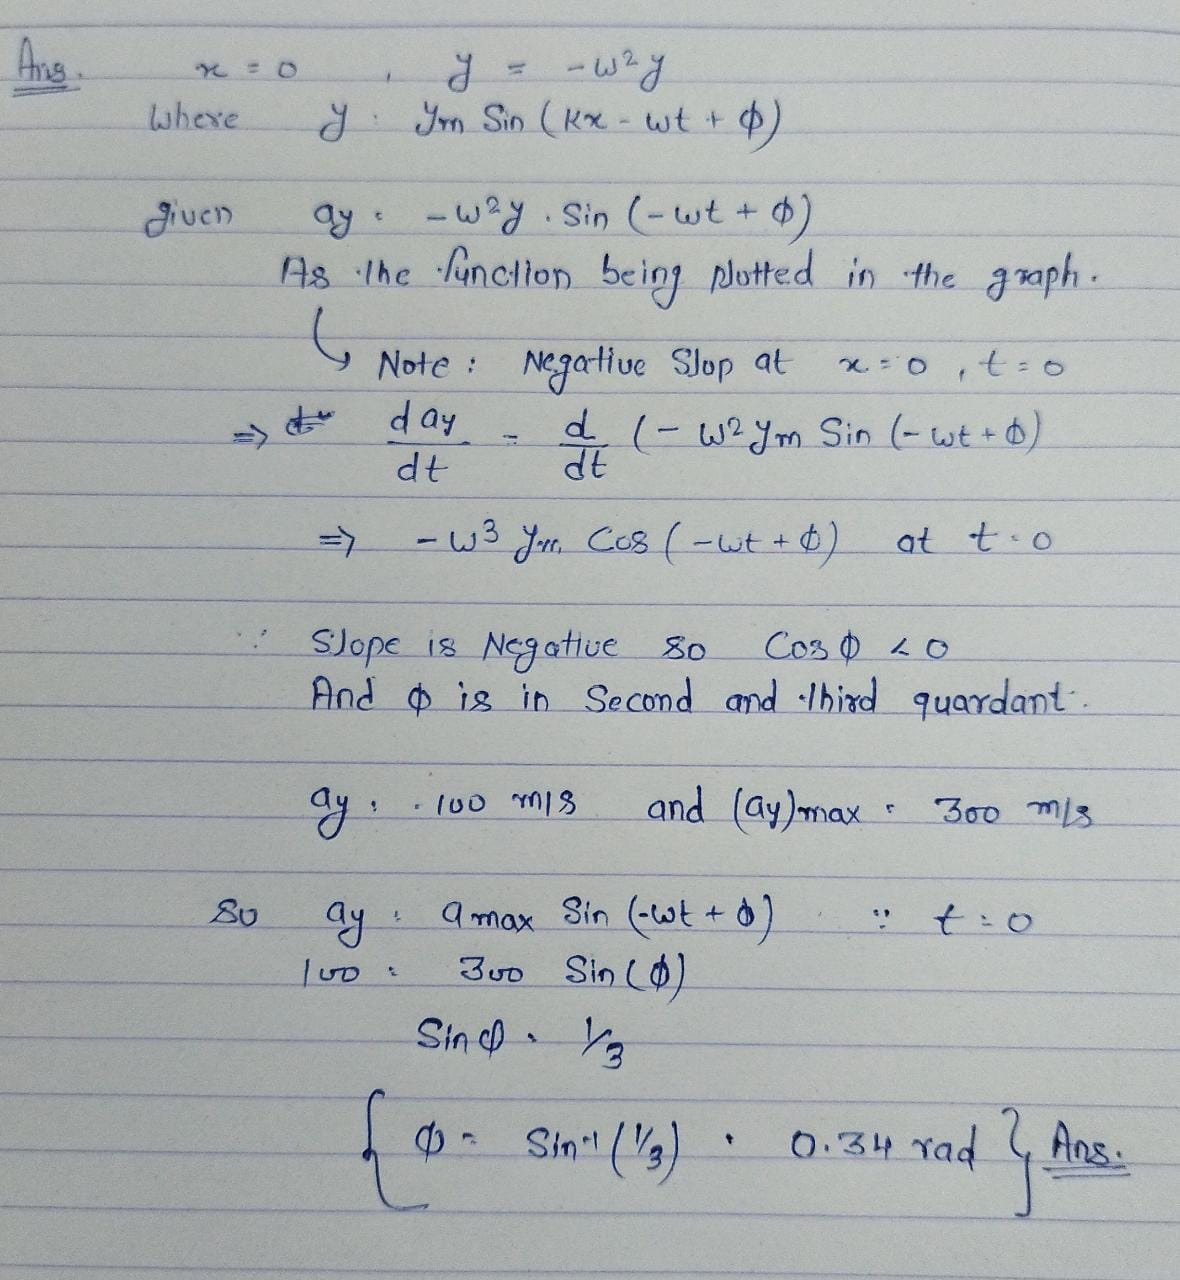 Ans. x = 0 , y = -w²y
Where y : ym Sin (kx - wt + φ)
given ay : -w²y . Sin (-wt + φ)
As the function being plotted in the graph.
↳ Note : Negative Slop at x = 0 , t = 0
⇒ day/dt = d/dt (- w² ym Sin (-wt + φ)
⇒ -w³ ym Cos (-wt + φ) at t = 0
∵ Slope is Negative so Cos φ < 0
And φ is in Second and third quardant.
ay : . 100 m/s and (ay)max = 300 m/s
so ay : a max Sin (-wt + φ) ∵ t = 0
100 : 300 Sin (φ)
Sin φ = 1/3
{ φ = Sin⁻¹ (1/3) . 0.34 rad } Ans.